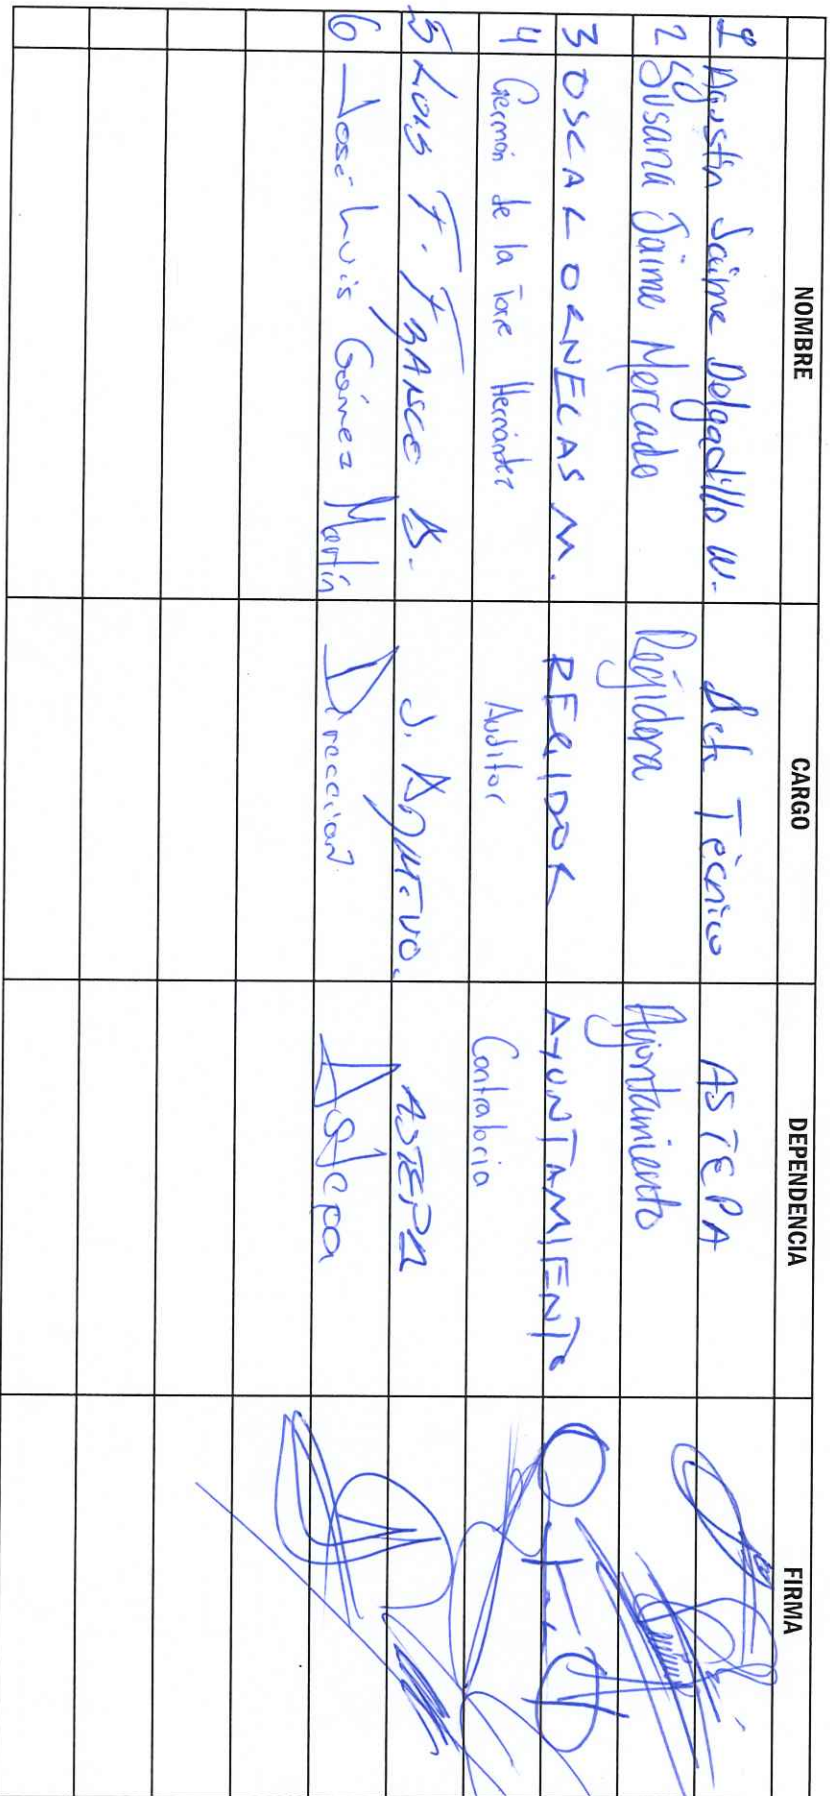 NOMBRE CARGO DEPENDENCIA FIRMA
1 Agustín Jaime Delgadillo W. Técnico ASTEPA
2 Susana Jaime Mercado Regidora Ayuntamiento
3 OSCAR ORNELAS M. REGIDOR AYUNTAMIENTO
4 Germán de la Torre Hernández Auditor Contraloria
5 LUIS F. FRANCO J. ASTEPA
6 José Luis Gómez Martín Dirección Astepa